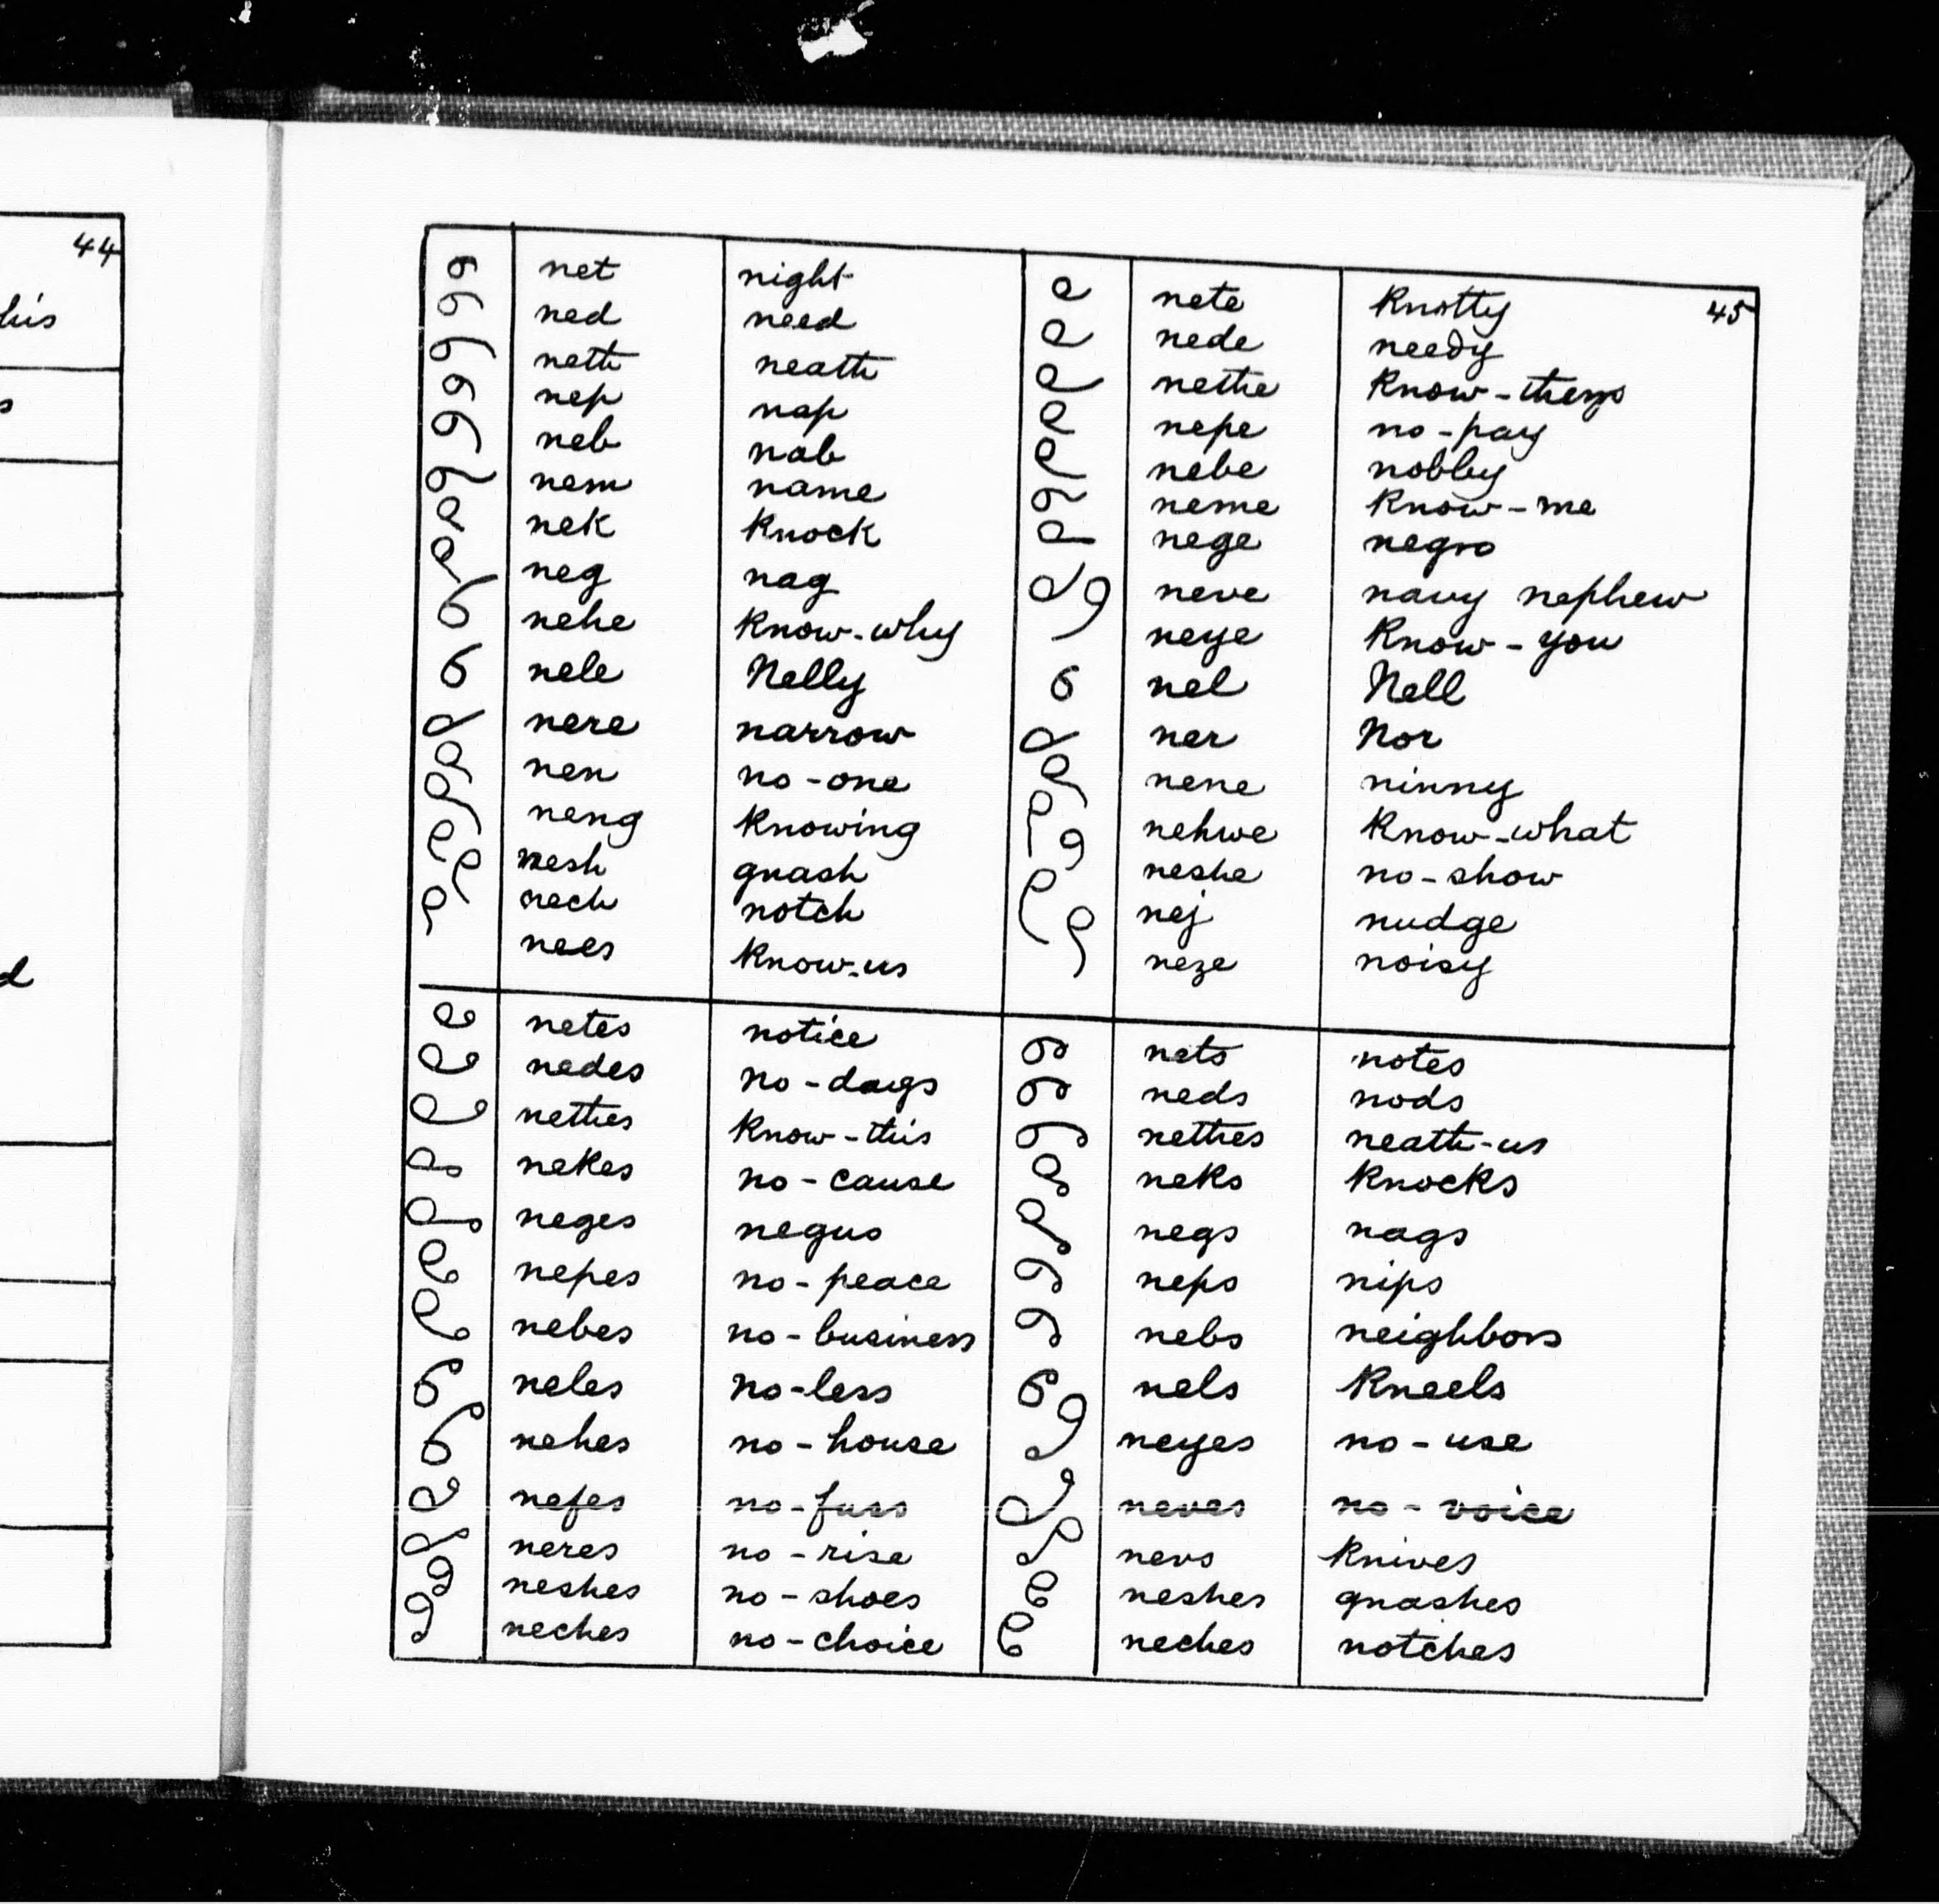 44
his
s
d
45
net night nete Knotty
ned need nede needy
neth neath nethe Know-them
nep nap nepe no-pay
neb nab nebe nobby
nem name neme Know-me
nek Knock nege negro
neg nag neve navy nephew
nehe Know-why neye Know-you
nele Nelly nel Nell
nere narrow ner Nor
nen no-one nene ninny
neng Knowing nehwe Know-what
nesh gnash neshe no-show
nech notch nej nudge
nees Know-us neze noisy
netes notice nets notes
nedes no-days neds nods
nethes Know-this nethes neath-us
nekes no-cause neks Knocks
neges negus negs nags
nepes no-peace neps nips
nebes no-business nebs neighbors
neles no-less nels Kneels
nehes no-house neyes no-use
nefes no-fuss neves no-voice
neres no-rise nevs Knives
neshes no-shoes neshes gnashes
neches no-choice neches notches